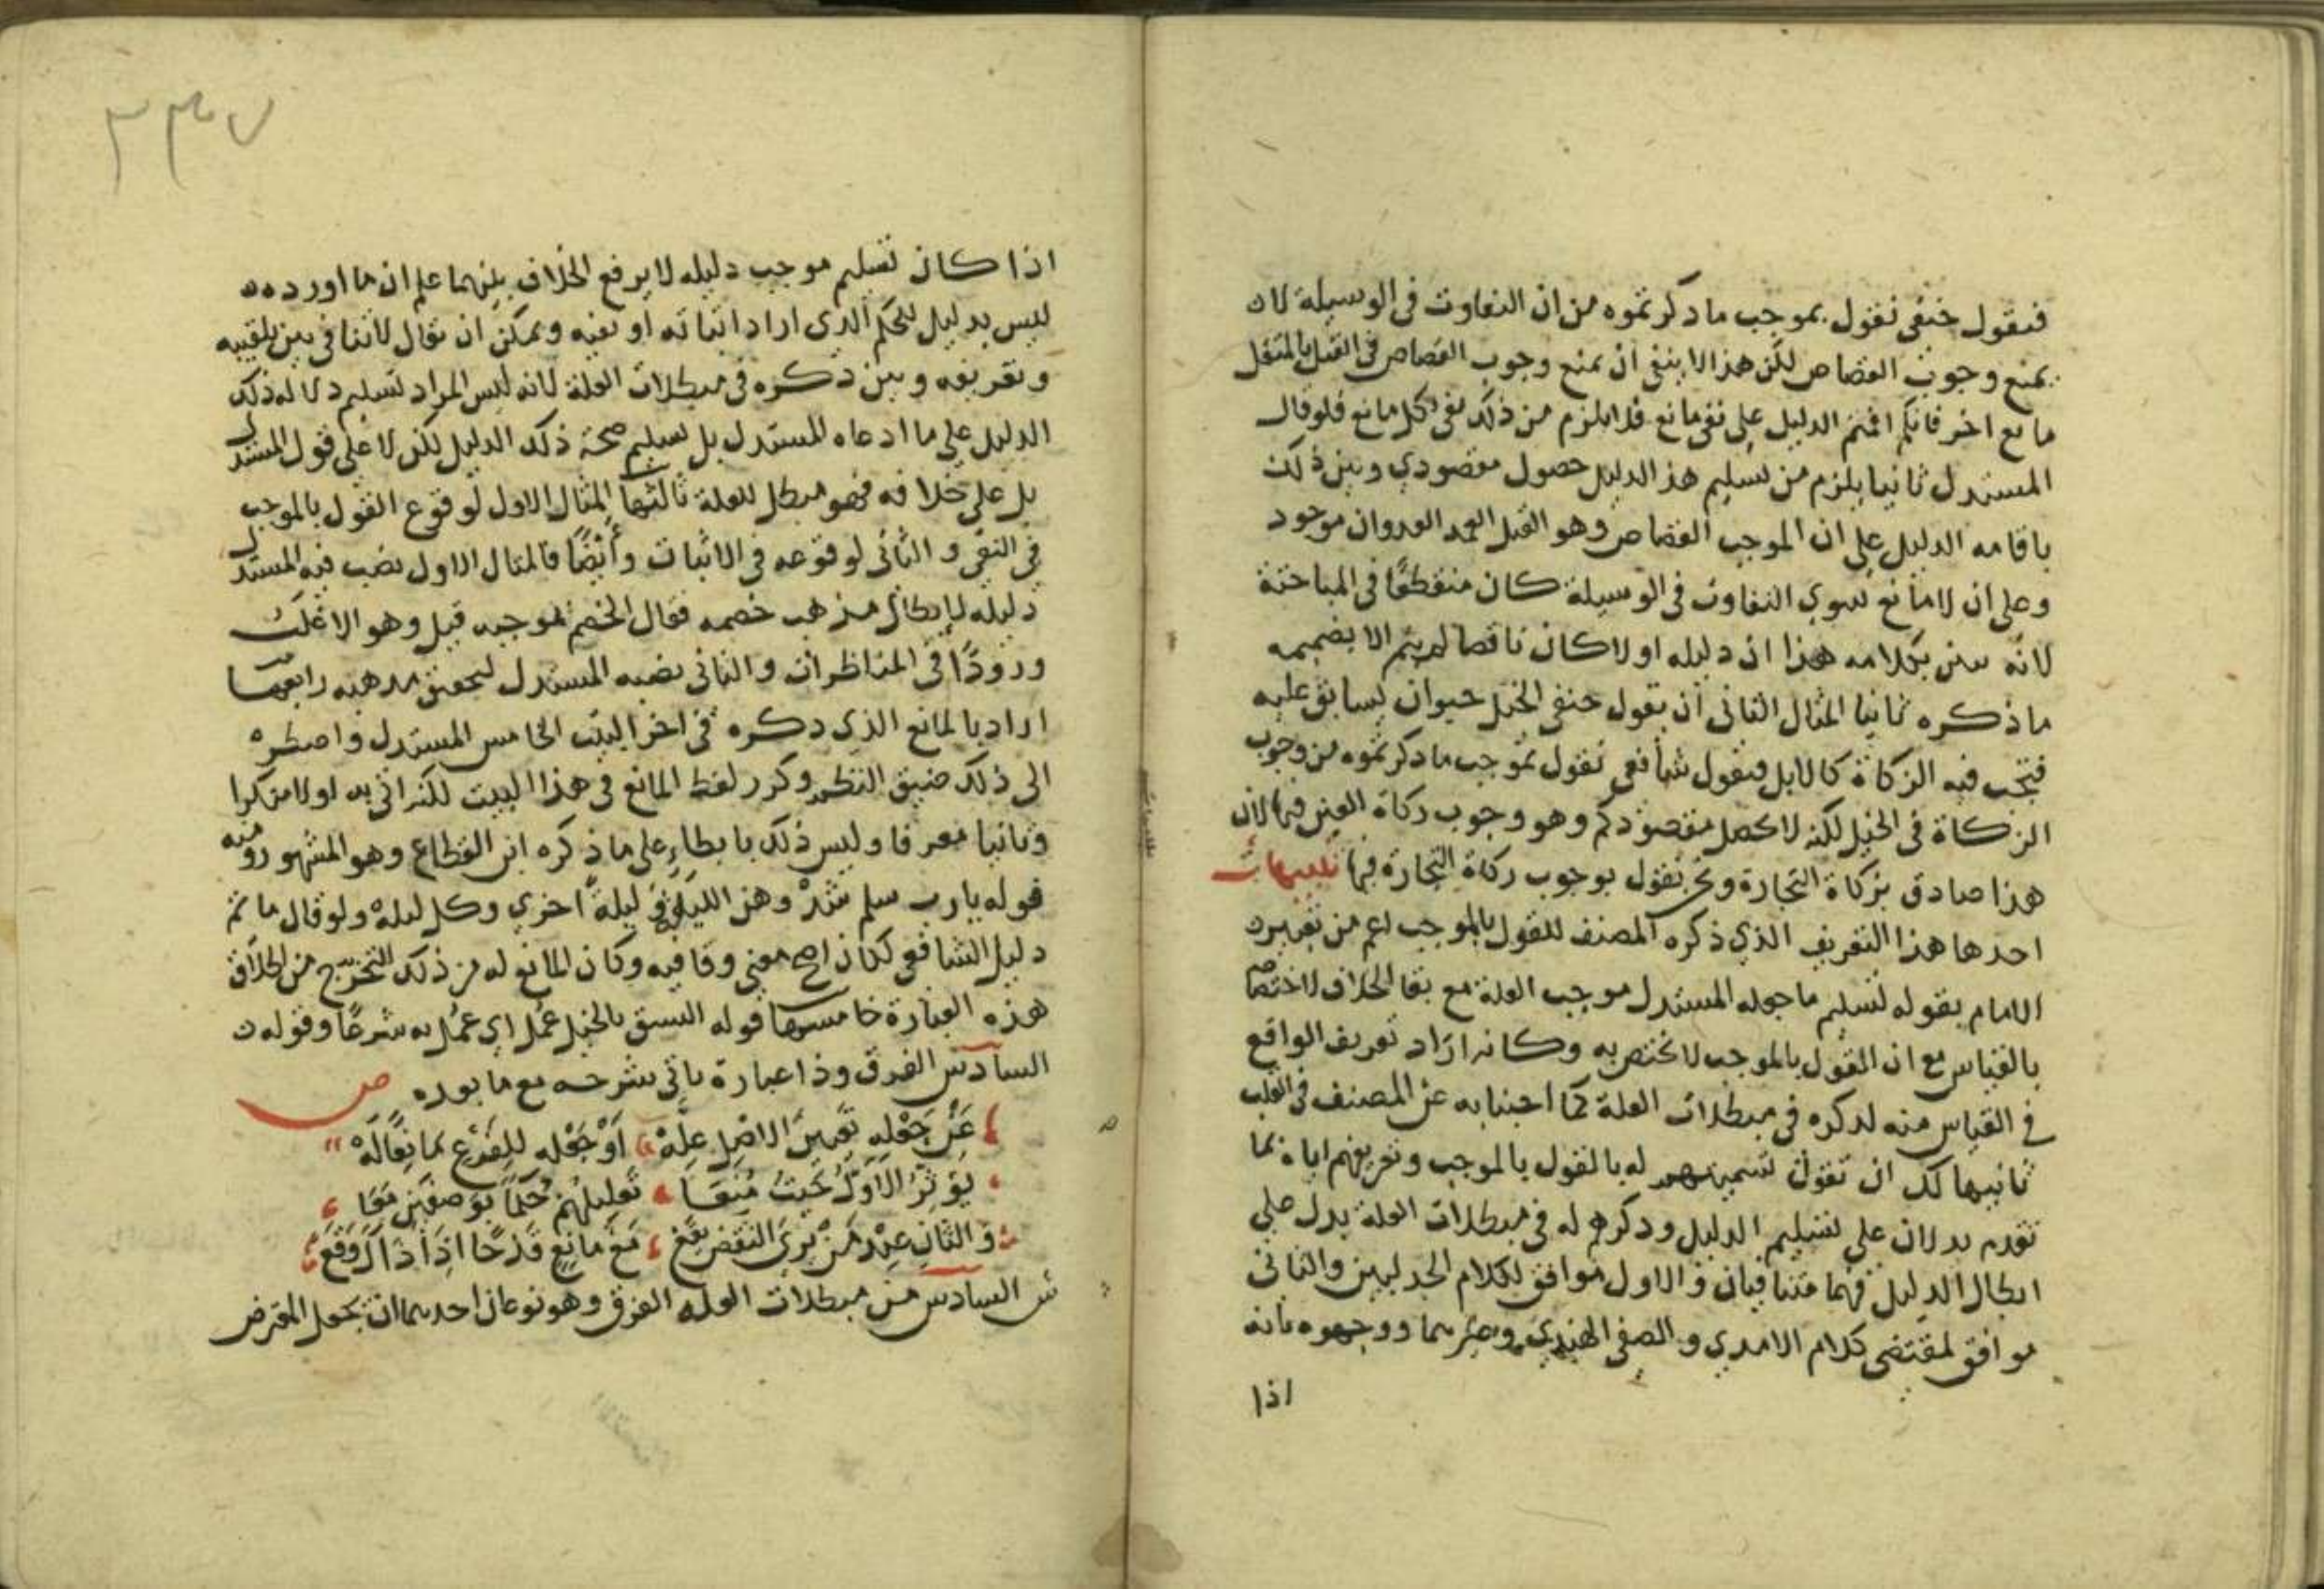 فيقول حنفي نقول بموجب ما ذكرتموه من ان التفاوت في الوسيلة لا
يمنع وجوب القصاص لكن هذا لا ينفي ان يمنع وجوب القصاص في القتل بالمثقل
مانع اخر فانكم اقمتم الدليل على نفي مانع فلا يلزم من ذلك نفي كل مانع فلو قال
المستدل ثانيا يلزم من تسليم هذا الدليل حصول مقصودي وبين ذلك
باقامه الدليل على ان الموجب القصاص وهو القتل العمد العدوان موجود
وعلى ان لا مانع سوي التفاوت في الوسيلة كان منقطعًا في المباحثة
لانه بين بكلامه هذا ان دليله اولا كان ناقصا لم يتم الا بضميمه
ما ذكره ثانيا المثال الثاني ان يقول حنفي الخيل حيوان يسابق عليه
فتجب فيه الزكاة كالابل فيقول شافعي نقول بموجب ما ذكرتموه من وجوب
الزكاة في الخيل لكنه لا يحصل مقصودكم وهو وجوب زكاة العين فيها لان
هذا صادق بزكاة التجارة ونحن نقول بوجوب زكاة التجارة فيها تنبيهات
احدها هذا التعريف الذي ذكره المصنف للقول بالموجب اعم من تعريف
الامام بقوله تسليم ما جعله المستدل موجب العلة مع بقا الخلاف لاختصاصه
بالقياس مع ان القول بالموجب لا يختص به وكانه اراد تعريف الواقع
في القياس منه لذكره في مبطلات العلة كما اجبنا به عن المصنف في القلب
ثانيها لك ان تقول تسميتهم له بالقول بالموجب وتعريفهم اياه بما
تقدم يدلان على تسليم الدليل وذكرهم له في مبطلات العلة يدل على
ابطال الدليل فهما متنافيان والاول موافق لكلام الجدليين والثاني
موافق لمقتضى كلام الامدي والصفي الهندي وغيرهما ووجهوه بانه
اذا
٢٣٧
اذا كان تسليم موجب دليله لا يرفع الخلاف بينهما علم ان ما اورده
ليس بدليل للحكم الذي اراد اثباته او نفيه ويمكن ان يقال لا تنافي بين تلقيبه
وتعريفه وبين ذكره في مبطلات العلة لانه ليس المراد تسليم دلاله ذلك
الدليل على ما ادعاه المستدل بل تسليم صحة ذلك الدليل لكن لا على قول المستدل
بل على خلافه فهو مبطل للعلة ثالثها المثال الاول لوقوع القول بالموجب
في النفي والثاني لوقوعه في الاثبات وأيضًا فالمثال الاول نصب فيه المستدل
دليله لابطال مذهب خصمه فقال الخصم بموجبه قيل وهو الاغلب
ورودًا في المناظرات والثاني نصبه المستدل ليحقق مذهبه رابعها
اراد بالمانع الذي ذكره في اخر البيت الخامس المستدل واضطره
الى ذلك ضيق النظم وكرر لفظ المانع في هذا البيت لكنه اتي به اولا منكرا
وثانيا معرفا وليس ذلك بايطاء على ما ذكره ابن القطاع وهو المشهور ومنه
قوله يارب سلم شدهن الليله وليلة اخري وكل ليله ولو قال ما تم
دليل الشافعي لكان اصح معني وقافيه وكان المانع له من ذلك التخرج من اطلاق
هذه العبارة خامسها قوله السبق بالخيل عمل اي عمل به شرعًا وقوله
السادس الفرق وذا عبارة ياتي شرحه مع ما بعده ص
عَنْ جَعْلِهِ تَعَيُّنَ الاَصْلِ عِلَّهْ اَوْ جَعْلِهِ لِلفَرْعِ مَانِعًا لَهْ
يُؤَثِّرُ الاَوَّلُ حَيْثُ مُنِعَا تَعْلِيلُهُمْ حُكْمًا بِوَصْفَيْنِ مَعَا
وَالثَّانِ عِنْدَ مَنْ يَرَى النَّقْضَ يَقَعْ مَعْ مَانِعٍ قَدْحًا اِذَا ذَاكَ وَقَعْ
ش السادس من مبطلات العله الفرق وهو نوعان احدهما ان يجعل المعترض